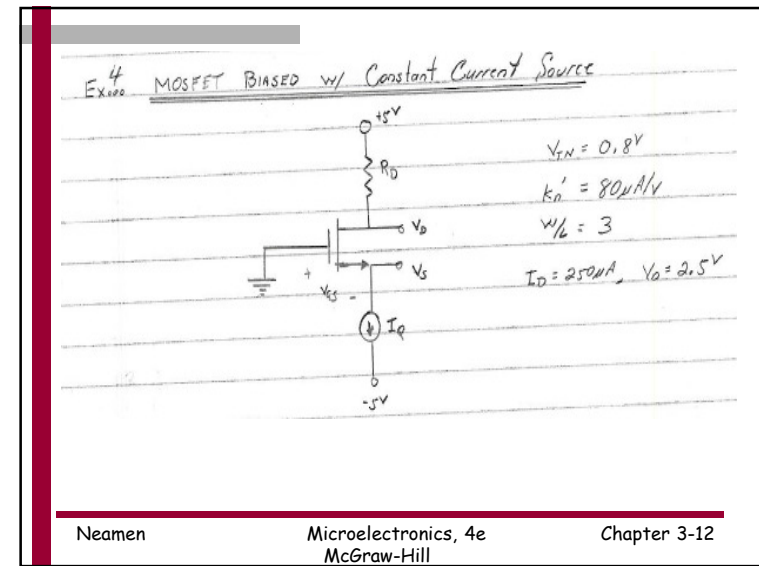 Ex... 4 MOSFET BIASED W/ Constant Current Source
+5V
RD
VTN = 0.8V
kn' = 80µA/V
W/L = 3
VD
VS
ID = 250µA, VD = 2.5V
+
VGS -
IQ
-5V
Neamen
Microelectronics, 4e
McGraw-Hill
Chapter 3-12